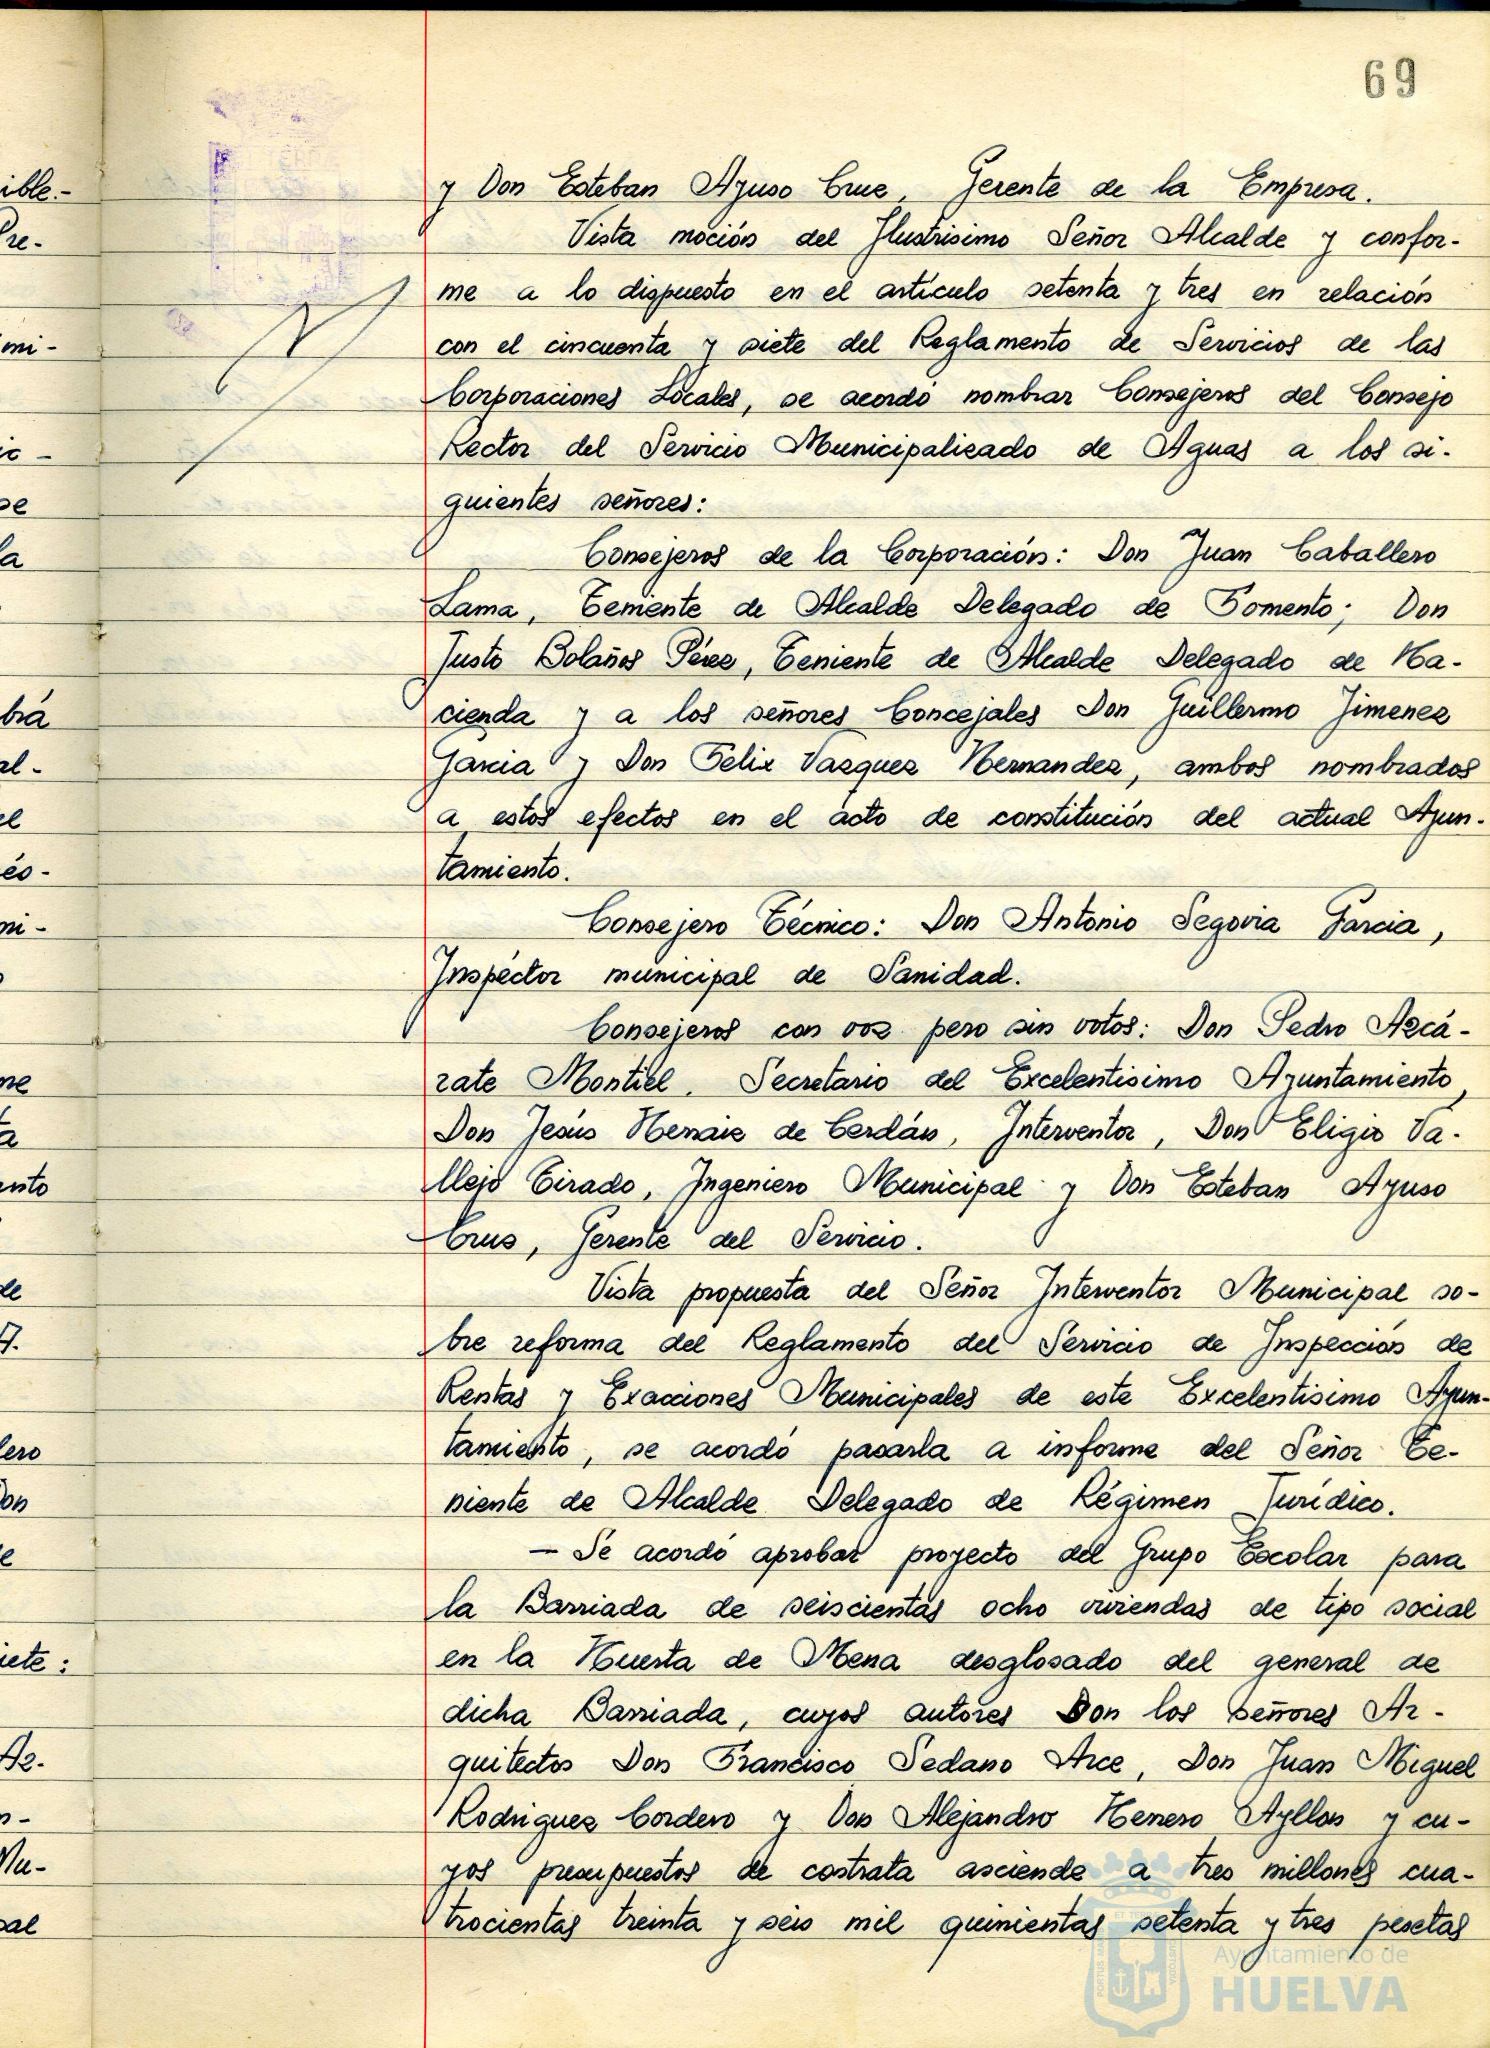 69
y Don Esteban Ayuso Cruz, Gerente de la Empresa.
Vista moción del Ilustrisimo Señor Alcalde y confor-
me a lo dispuesto en el artículo setenta y tres en relación
con el cincuenta y siete del Reglamento de Servicios de las
Corporaciones Locales, se acordó nombrar Consejeros del Consejo
Rector del Servicio Municipalizado de Aguas a los si-
guientes señores:
Consejeros de la Corporación: Don Juan Caballero
Lama, Teniente de Alcalde Delegado de Fomento; Don
Justo Bolaños Pérez, Teniente de Alcalde Delegado de Ha-
cienda y a los señores Concejales Don Guillermo Jimenez
Garcia y Don Felix Vazquez Hernandez, ambos nombrados
a estos efectos en el acto de constitución del actual Ayun-
tamiento.
Consejero Técnico: Don Antonio Segovia Garcia,
Inspector municipal de Sanidad.
Consejeros con voz pero sin votos: Don Pedro Azcá-
rate Montiel, Secretario del Excelentisimo Ayuntamiento,
Don Jesús Herraiz de Cerdán, Interventor, Don Eligio Va-
llejo Tirado, Ingeniero Municipal y Don Esteban Ayuso
Cruz, Gerente del Servicio.
Vista propuesta del Señor Interventor Municipal so-
bre reforma del Reglamento del Servicio de Inspección de
Rentas y Exacciones Municipales de este Excelentisimo Ayun-
tamiento, se acordó pasarla a informe del Señor Te-
niente de Alcalde Delegado de Régimen Jurídico.
- Se acordó aprobar proyecto del Grupo Escolar para
la Barriada de seiscientas ocho viviendas de tipo social
en la Huerta de Mena desglosado del general de
dicha Barriada, cuyos autores Son los señores Ar-
quitectos Don Francisco Sedano Arce, Don Juan Miguel
Rodriguez Cordero y Don Alejandro Herrero Ayllon y cu-
yos presupuestos de contrata asciende a tres millones cua-
trocientas treinta y seis mil quinientas setenta y tres pesetas
Ayuntamiento de
HUELVA